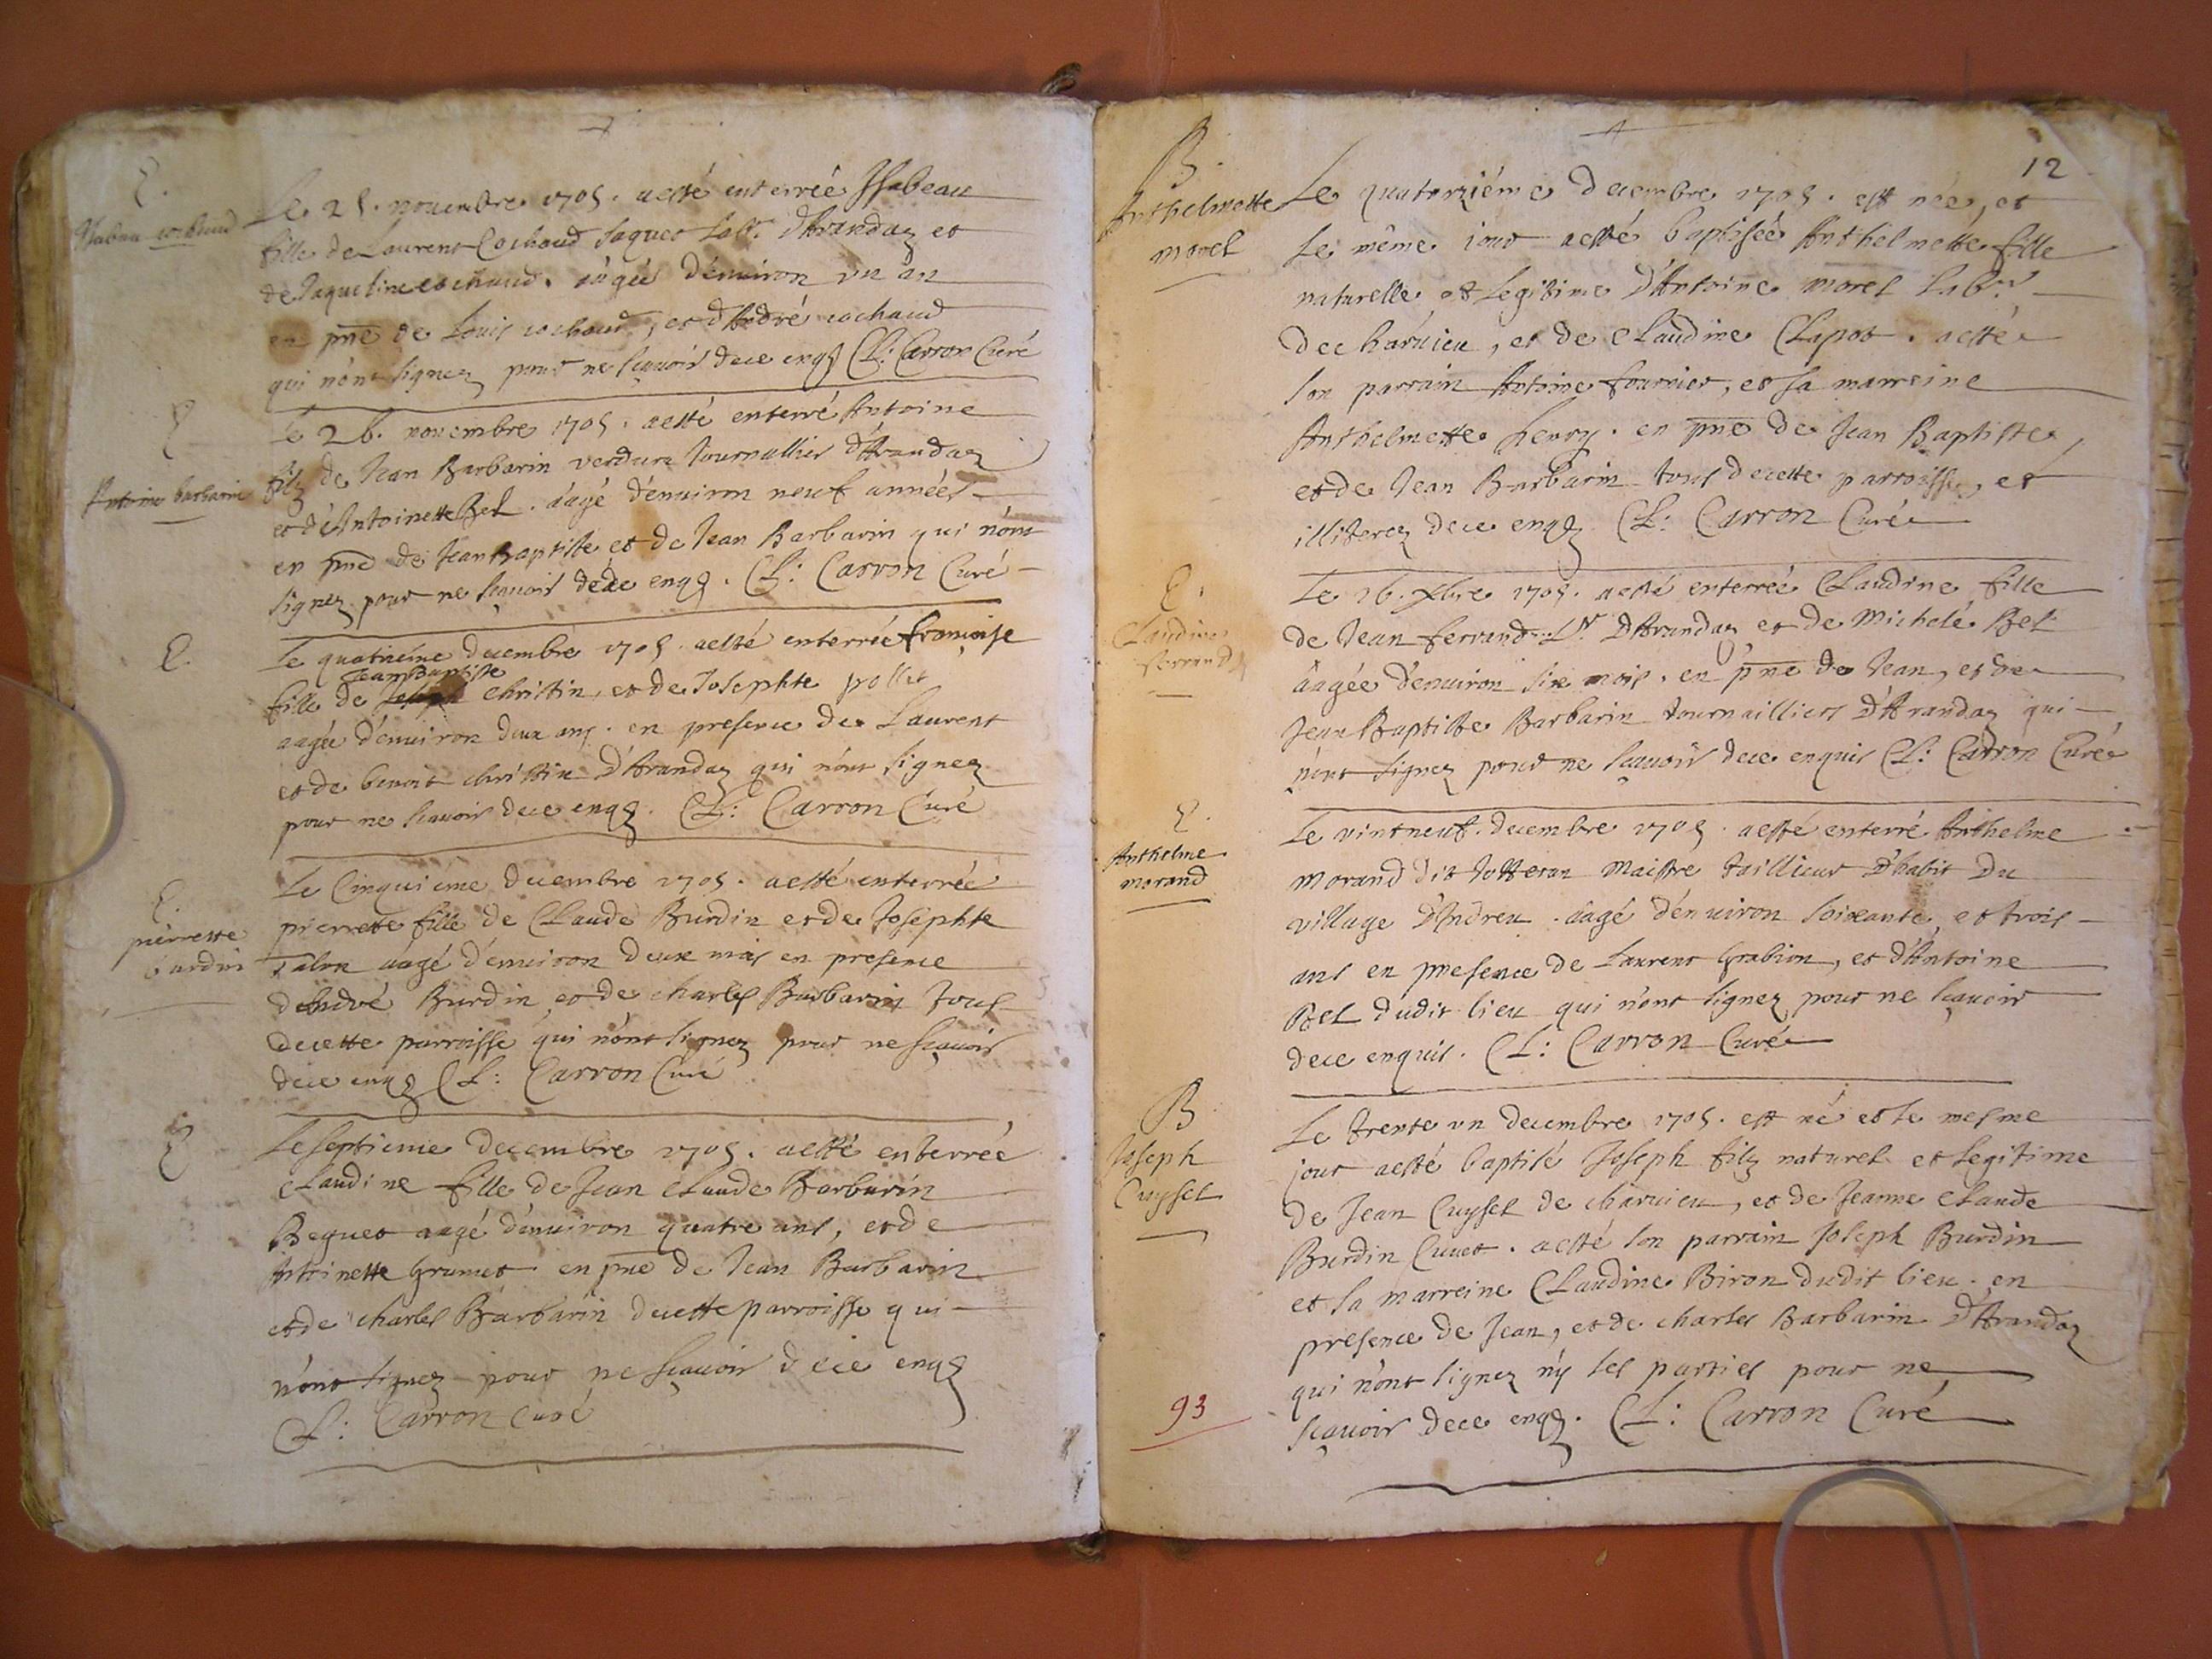 E.
Le 25. nouembre 1705. aesté enterrée Ysabeau
fille de Laurent Cochoud Jaquet Labr. d'Arandaz et
de Jaqueline cochoud. aâgée d'enuiron vn an
en pñe de Louis cochoud, et d'André cochoud
qui n'ont signez pour ne sçauoir dece enqs CL: Carron Curé
E
Antoine barbarin
Le 26. nouembre 1705. aesté enterré Antoine
filz de Jean Barbarin verdura Journallier d'Arandaz
et d'Antoinette Bel. aagé d'enuiron neuf années
en pñe de Jean Baptiste et de Jean Barbarin qui n'ont
signez pour ne sçauoir dece enqs. CL: Carron Curé
E.
Le quatrième decembre 1705. aesté enterrée françoise
Jean Baptiste
fille de Joseph Christin, et de Josephte pollet
aagée d'enuiron deux ans. en presence de Laurent
et de benoit christin d'Arandaz qui n'ont signez
pour ne scauoir dece enqs. CL: Carron Curé
E.
pierrette
burdin
Le Cinquième decembre 1705. aesté enterrée
pierrette fille de Claude Burdin et de Josephte
talon aagé d'enuiron deux mois en presence
d'Andvé Burdin et de charles Barbarin tous
decette parroisse qui n'ont signez pour ne sçauoir
dece enqs CL: Carron Curé
E
Le septieme decembre 1705. aesté enterrée
claudine fille de Jean claude Barbarin
Beguet aagé d'enuiron quatre ans, et de
Antoinette Grumet en pñe de Jean Barbarin
et de charles Barbarin decette parroisse qui
n'ont signez pour ne sçauoir dece enqs
CL: Carron Curé
12
B.
Anthelmette
morel
Le quatorziéme decembre 1705. est née, et
le même iour aesté baptisée Anthelmette fille
naturelle et legitime d'Antoine morel Labr
decharuieu, et de Claudine Clapot. aesté
son parrain Antoine fournier, et sa marreine
Anthelmette henry. en pñe de Jean Baptiste,
et de Jean Barbarin tous decette parroisse, et
illiterez dece enqs CL: Carron Curé
E.
Claudine
ferrand
Le 16. xbre 1705. aesté enterrée Claudine fille
de Jean ferrand Lr d'Arandaz et de Michele Bel
âagée d'enuiron six mois. en pñe de Jean, et de
Jean Baptiste Barbarin Journailliers d'Arandaz qui
n'ont signez pour ne scauoir dece enquis CL: Carron Curé
E.
Anthelme
morand
Le vintneuf. decembre 1705. aesté enterré Anthelme
morand dit maistre tailleur d'habit du
village d'Indreu. âagé d'enuiron soixante, et trois
ans en presence de Laurent Grabion, et d'Antoine
Bel dudit lieu qui n'ont signez pour ne sçauoir
dece enquis. CL: Carron Curé
B
Joseph
Cuysel
Le trente vn decembre 1705. est né et le mesme
jour aesté baptisé Joseph filz naturel et legitime
de Jean Cuysel de charuieu, et de Jeanne claude
Burdin Cuuet. aesté son parrain Joseph Burdin
et sa marreine Claudine Biron dudit lieu. en
presence de Jean, et de charles Barbarin d'Arandaz
qui n'ont signez ny les parties pour ne
sçauoir dece enqs. CL: Carron Curé
93